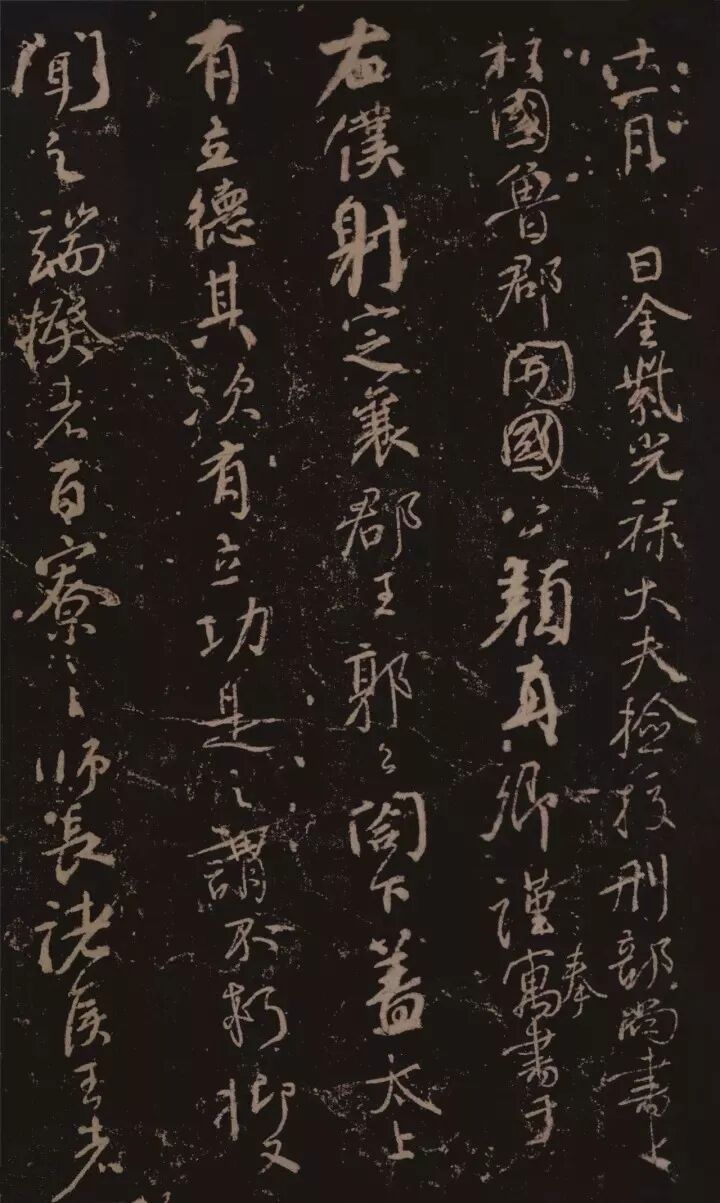 十一月 日金紫光祿大夫檢校刑部尚書上
柱國魯郡開國公顏真卿謹奉寓書于
右僕射定襄郡王郭公閤下蓋太上
有立德其次有立功是之謂不朽抑又
聞之端揆者百寮之師長諸侯王者